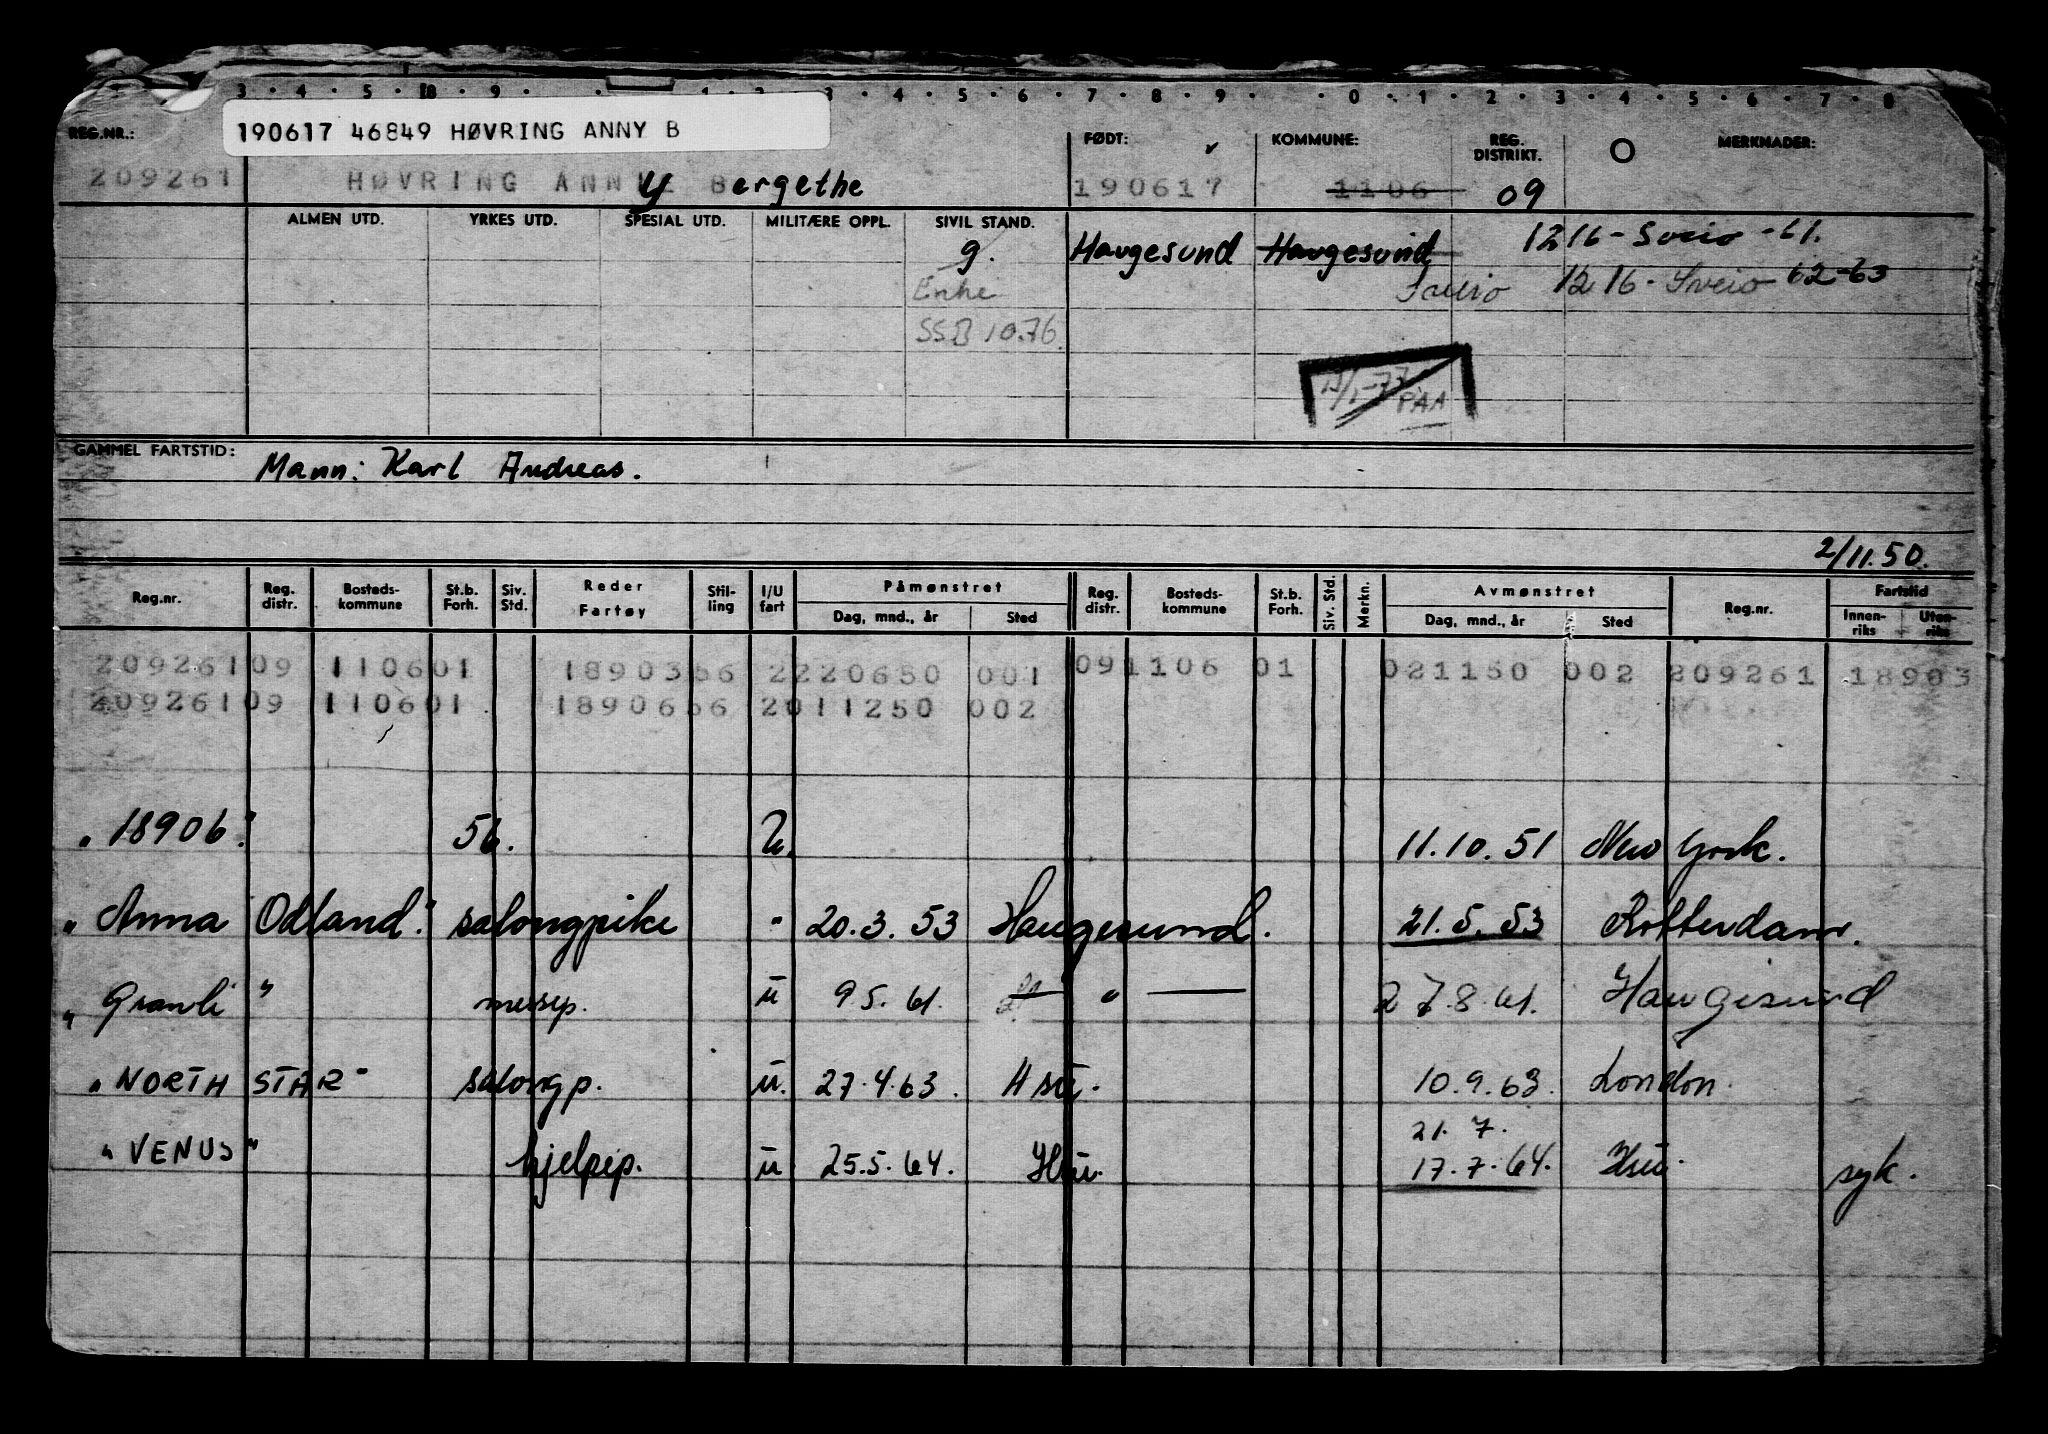 3 · 4 · 5 · 8 · 9 · 1 · 2 · 3 · 4 · 5 · 6 · 7 · 8 · 9 · 0 · 1 · 2 · 3 · 4 · 5 · 6 · 7 · 8
190617 46849 HØVRING ANNY B
REG.NR.: FØDT: KOMMUNE: REG. DISTRIKT. O MERKNADER:
209261 HØVRING ANNY Bergethe 190617 1106 09
ALMEN UTD. YRKES UTD. SPESIAL UTD. MILITÆRE OPPL. SIVIL STAND.
g. Haugesund Haugesund 1216 - Sveio - 61.
Enke Sveio 1216 - Sveio 62-63
SSB 10.76
PAA
GAMMEL FARTSTID: Mann: Karl Andreas.
2/11.50.
Reg.nr. Reg. distr. Bosteds-kommune St.b. Forh. Siv. Std. Reder Fartøy Stil-ling I/U fart Påmønstret Dag, mnd., år Sted Reg. distr. Bosteds-kommune St.b. Forh. Siv. Std. Merkn. Avmønstret Dag, mnd., år Sted Reg.nr. Fartstid Innen-riks Uten-riks
209261 09 1106 01 18903 56 2 220650 001 09 1106 01 021150 002 209261 18903
209261 09 1106 01 18906 56 2 011250 002
"18906" 56. U. 11.10.51 New York.
"Anna Odland" salongpike " 20.3.53 Haugesund. 21.5.53 Rotterdam.
"Granli" messep. u 9 5. 61. — " — 27.8.61. Haugesund
"NORTH STAR" salongp. u. 27.4.63. Hsu. 10.9.63. London.
21.7.
"VENUS" hjelpep. u 25.5.64. Hsu. 17.7.64. Hsu. syk.